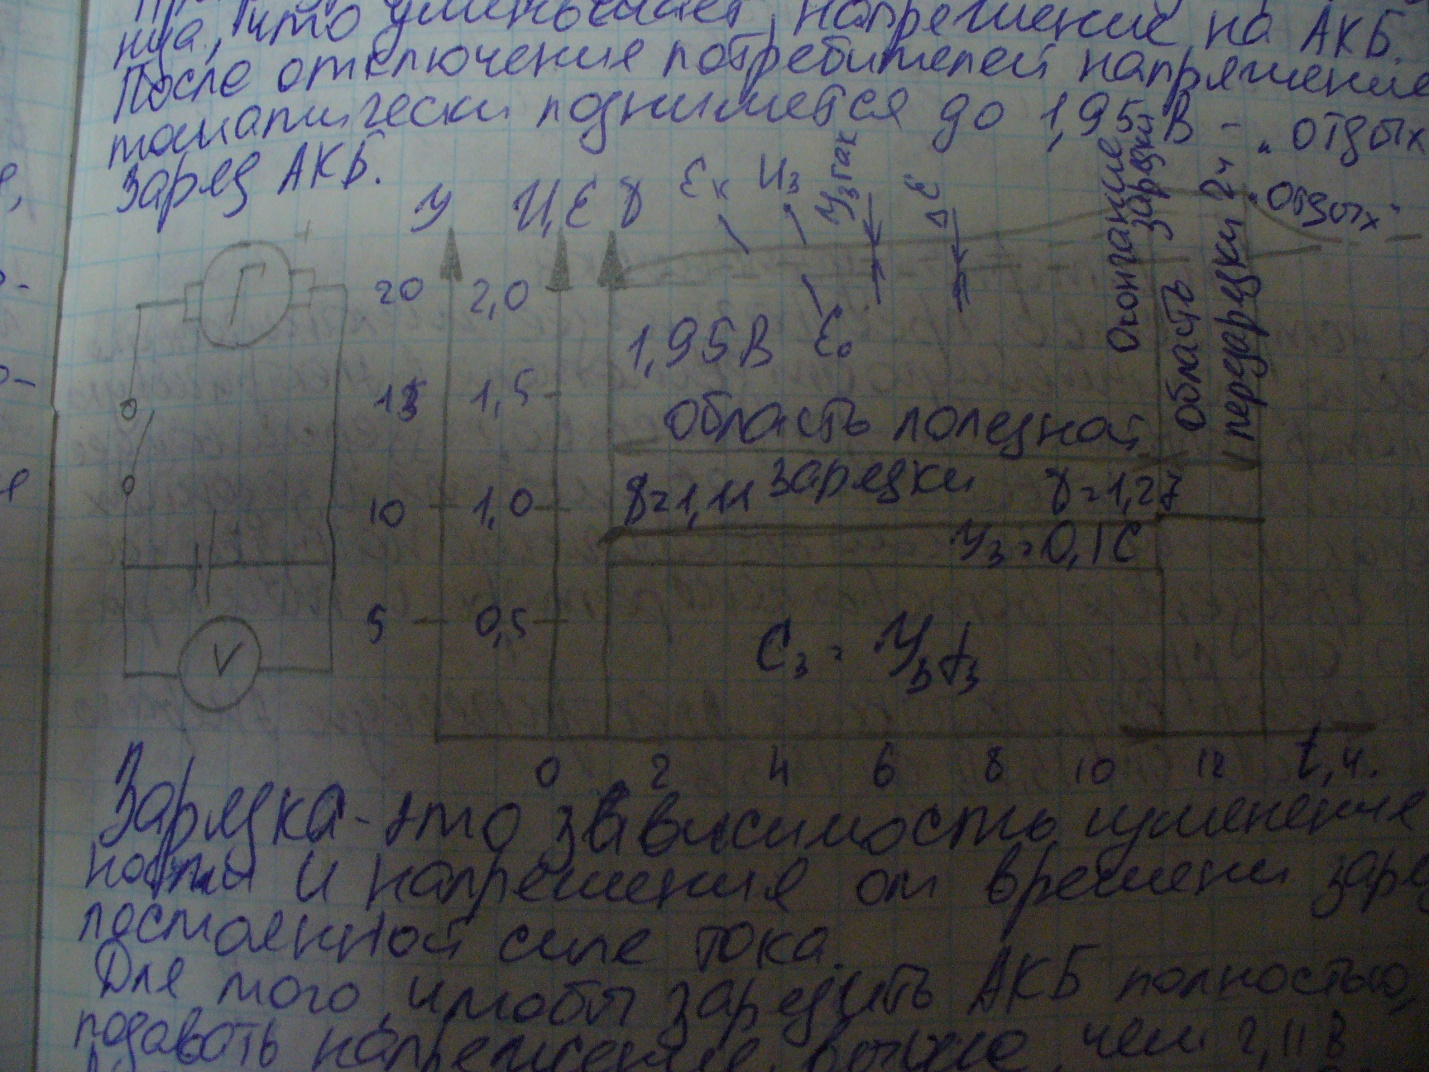 что уменьшает напряжение на АКБ.
После отключения потребителей напряжение
томатически поднимается до 1,95 В - "отдых
Заряд АКБ.
У И,Е γ Ек Из Уз Rак ΔЕ
Окончание зарядки
Область перезарядки 2ч
"Отдых"
+
Г
20 2,0
1,95В Е₀
15 1,5
область полезной
зарядки
10 1,0
γ=1,11 γ=1,27
Уз=0,1С
5 0,5
Сз = Уз tз
V
0 2 4 6 8 10 12 t,ч.
Зарядка - это зависимость изменение
ности и напряжения от времени заря
постоянной силе тока.
Для того, чтобы зарядить АКБ полностью,
подавать напряжение выше, чем 2,11 В